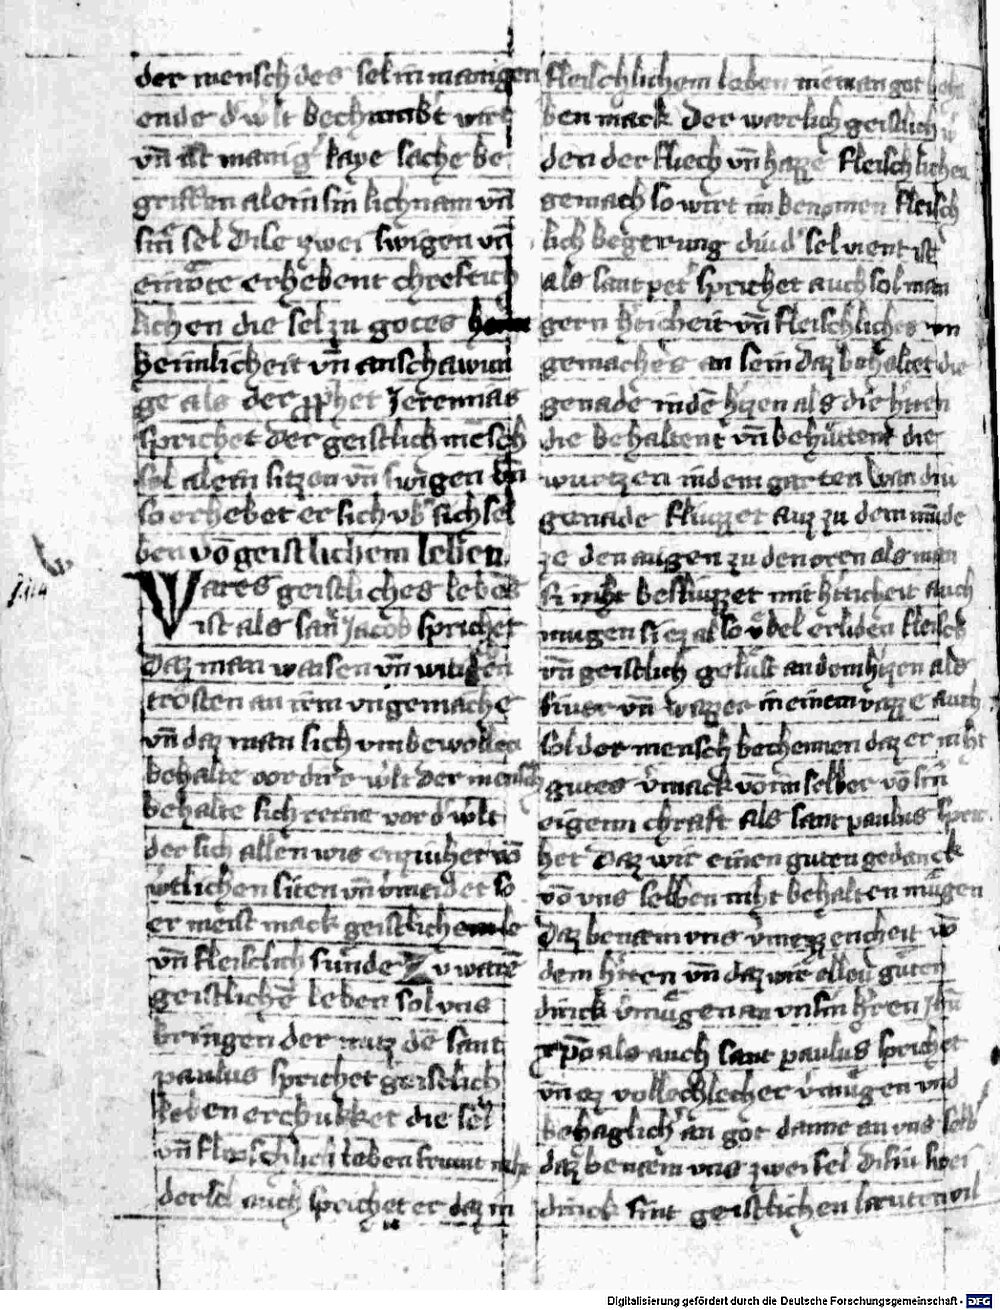 der mensch des sel in manigen
ende d' w'lt bechumb't wirt
vn̄ ist manig' sache be
griffen alein sin lichnam vn̄
sin' sel Dise zwei swigen vn̄
erhebent
lichen die sel zu gotes
heimlicheit vn̄ anschawun
ge als der ꝓphet Jeremias
sprichet Der geistlich mēsch
sol alein sitzen vn̄ swigen
so erhebet er sich vb' sich sel
ben vō geistlichem leben
Wares geistliches lebēs
ist als san' Jacob sprichet
Daz man waisen vn̄ wituben
trosten an irm vngemache
vn̄ daz man sich vnbewollen
behalte vor dir're w'lt Der mensch
behalte sich reine vor d' w'lt
der sich allen wis enziuhet vō
w'tlichen siten vn̄ v'meidet so
er meist mack geistlichem le
vn̄ fleischlich sunde Zu warē
geistlichē leben sol vns
bringen der nutz dē sant
paulus sprichet geistlich
leben erchukket die sel
vn̄ fleischlich leben frumt niht
der sel auch sprichet er daz in
fleischlichem leben nieman got beha
ben mack Der warlich geistlich w'
den der fliech vn̄ hazze fleischlichen
gemach so wirt im benomen fleisch
lich begerung diu d' sel vient ist
als sant pet' sprichet auch sol man
gern vn̄ fleischliches vn
gemaches an sein daz behaltet die
genade in dē h'tzen als die
die behaltent vn̄ behuttent die
wurtzen in dem garten Wan diu
genade fliuzzet auz zu dem mūde
ze den augen zu den oren als man
si niht besliuzzet mit auch
mugen si ez also vbel erliden fleisch
vn̄ geistlich gelust an dem h'tzen als
fiuer vn̄ wazzer in einem vazze auch
sol der mensch bechennen daz er niht
gutes v'mack vō im selber vō sin'
eigenn chraft als sant paulus spri
chet Daz wir einen guten gedanck
vō vns selben niht behalten mugen
Daz benem vns v'mezzenheit vō
dem h'tzen vn̄ daz wir elleu guten
dinck v'mugen an vnsm h'ren Jhū
xpō als auch sant paulus sprichet
vn̄ ez vollechlecher v'mugen vnd
behaglich' an got danne an vns selb
daz benem vns zweifel Disiu zwei
dinck sint geistlichen leuten vil
Digitalisierung gefördert durch die Deutsche Forschungsgemeinschaft - DFG